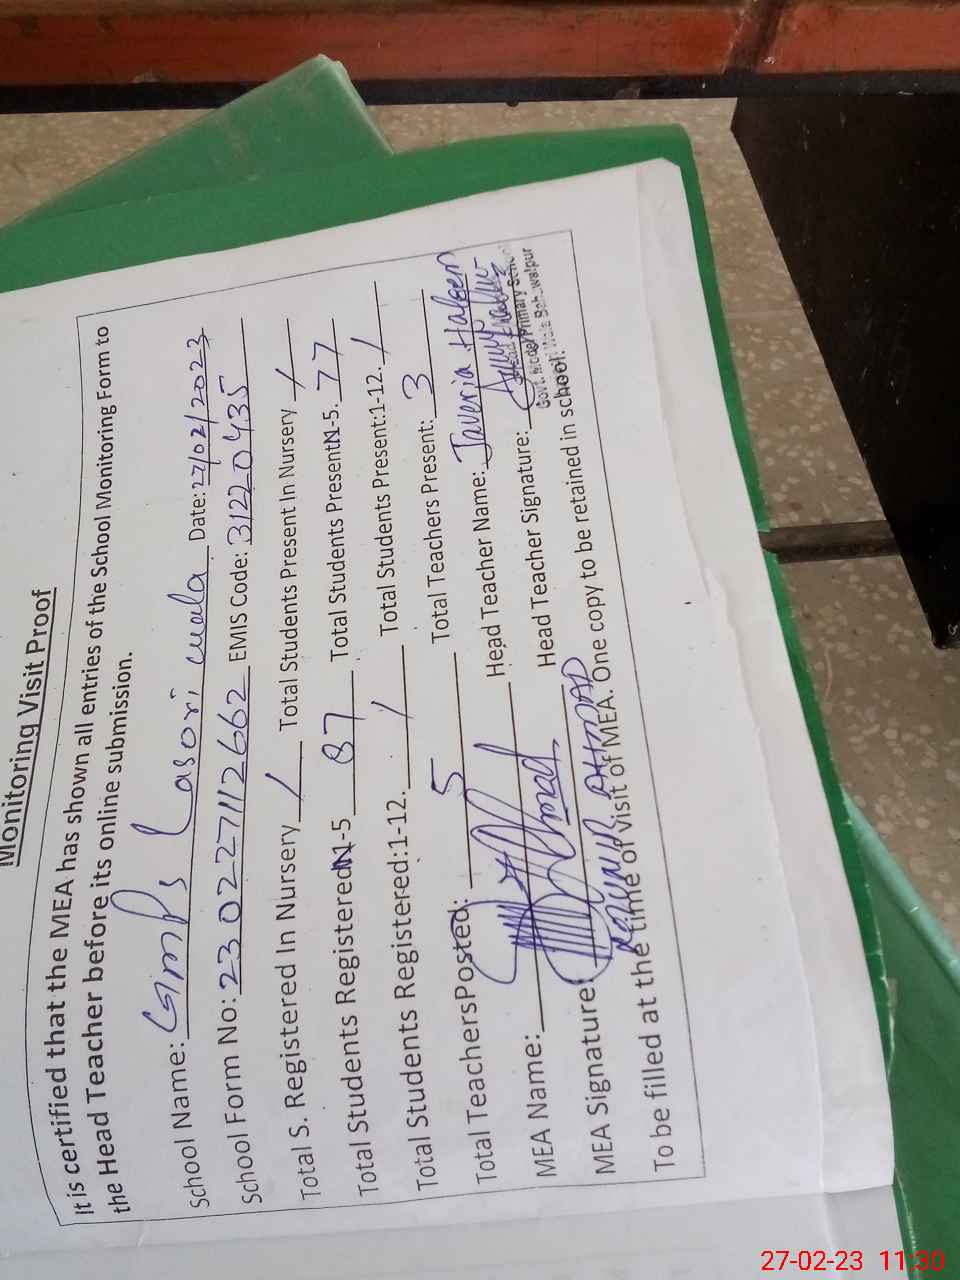 Monitoring Visit Proof
It is certified that the MEA has shown all entries of the School Monitoring Form to
the Head Teacher before its online submission.
School Name: GMPS Lasori wala Date: 27/02/2023
School Form No: 230227112662 EMIS Code: 31220435
Total S. Registered In Nursery / Total Students Present In Nursery /
Total Students Registered N-5 87 Total Students Present N-5. 77
Total Students Registered:1-12. / Total Students Present:1-12. /
Total TeachersPosted: 5 Total Teachers Present: 3
MEA Name: Head Teacher Name: Javeria Haleem
MEA Signature: AHMAD Head Teacher Signature:
Head
Govt. Model Primary School
Wala Bahawalpur
To be filled at the time of visit of MEA. One copy to be retained in school.
27-02-23 11:30